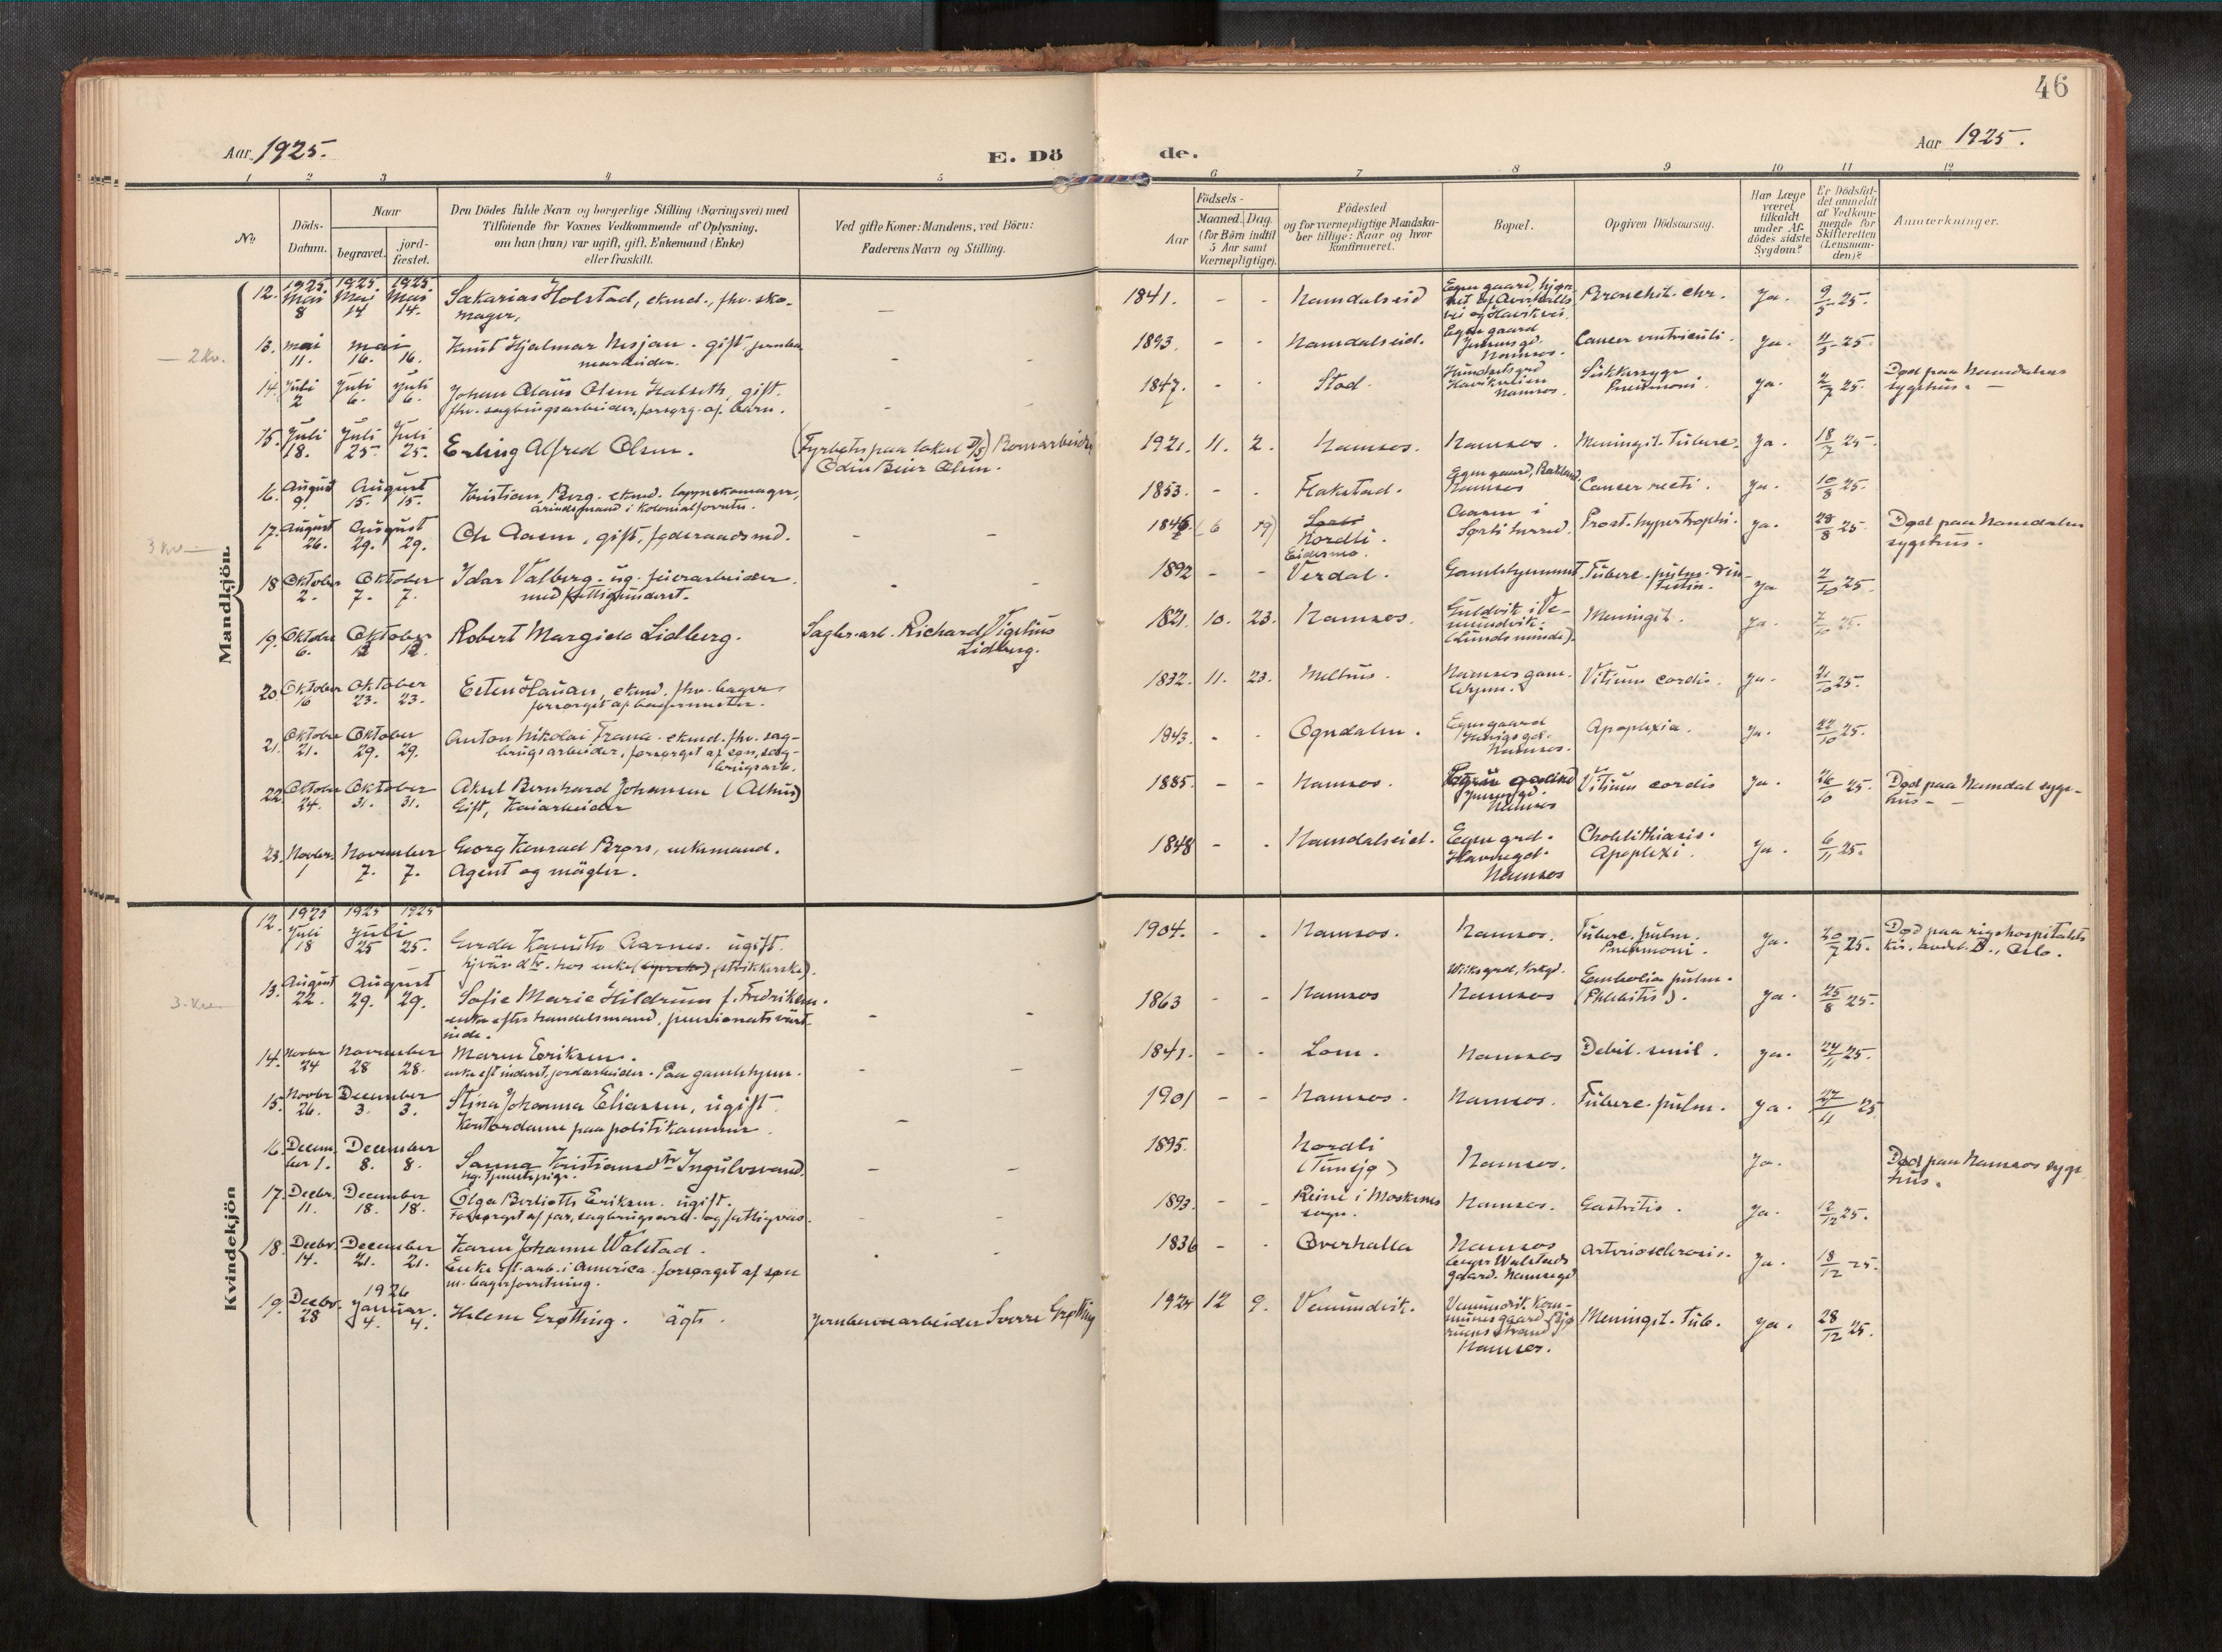 46
Aar 1925.
E. Dö
de.
Aar 1925.
1 2 3 4 5 6 7 8 9 10 11 12
No
Döds-
Datum.
Naar
begravet.
jord-
fæstet.
Den Dödes fulde Navn og borgerlige Stilling (Næringsvei) med
Tilföiende for Voxnes Vedkommende af Oplysning,
om han (hun) var ugift, gift, Enkemand (Enke)
eller fraskilt.
Ved gifte Koner: Mandens, ved Börn:
Faderens Navn og Stilling.
Födsels-
Aar
Maaned. Dag.
(for Börn indtil
5 Aar samt
Værnepligtige).
Födested
og for værnepligtige Mandska-
ber tillige: Naar og hvor
konfirmeret.
Bopæl.
Opgiven Dödsaarsag.
Har Læge
været
tilkaldt
under Af-
dödes sidste
Sygdom?
Er Dödsfal-
det anmeldt
af Vedkom-
mende for
Skifteretten
(Lensman-
den)?
Anmærkninger.
Mandkjön
12. 1925 Mai 8 1925 Mai 14 1925 Mai 14. Sakarias Holstad, ekmd., fhv. sko-
mager. — 1841. - - Namdalseid Bronchit. chr. Ja. 9/5 25.
— 2 Kv.
13. mai 11. mai 16. 16. Knut Hjalmar Nesjan - gift,
- - 1893. - - Namdalseid. Egen gaard
Namsos. Cancer ventriculi. Ja. 11/5 25.
14. Juli 2 Juli 6. Juli 6. Johan Olaus Olsen Halseth, gift.
fhv. sagbrugsarbeider, forsørg. af barn. - - 1847. - - Stod.
Havikveien
Namsos. Sukkersyge
Pneumoni. Ja. 2/7 25. Død paa Namdalens
sygehus. —
15. Juli 18. Juli 25 Juli 25. Erling Alfred Olsen. (Fyrbøter paa lokal D/S)
Odin Beier Olsen. 1921. 11. 2. Namsos. Namsos. Meningit. Tuberc. Ja. 18/7 25.
16. August 9. August 15. 15. Kristian Berg. ekmd. lappeskomager,
ærindsmand i kolonialforretn. 1853. - - Flakstad. Egen gaard,
Namsos Cancer recti. Ja. 10/8 25.
3 Kv —
17. August 26. August 29. 29. Ole Aasen, gift, føderaadsmd. - - 1846 (6 19)
Nordli. Aasen i
Sørli herred. Prost. hypertrophi. Ja. 28/8 25. Død paa Namdalens
sygehus.
18. Oktober 2. Oktober 7. 7. Idar Valberg. ug. feierarbeider
med fattigunderst. - - 1892 - - Eidesmo.
Verdal. Gamlehjemmet Tuberc. pulm.
Ja 2/10 25.
19. Oktober 6. Oktober 12 12. Robert Margido Lidberg. Sagbr.arb. Richard Vigelius
Lidberg. 1821. 10. 23. Namsos. Guldvik i Ve-
mundvik.
Meningit. Ja. 7/10 25.
20. Oktober 16 Oktober 23. 23. Esten Hauan, ekmd. fhv. bager
forsørget af
1832. 11. 23. Melhus. Namsos gam-
lehjem. Vitium cordis. Ja. 21/10 25.
21. Oktober 21. Oktober 29. 29. Anton Nikolai Frana. ekmd. fhv. sag-
brugsarbeider, forsørget af søn, sag-
brugsarb. 1843. - - Ogndalen. Egen gaard
Namsos. Apoplexia. Ja. 22/10 25.
22. Oktober 24. Oktober 31. 31. Aksel Bernhard Johansen (Alhus)
Gift, Kaiarbeider 1885. - - Namsos.
Namsos Vitium cordis Ja. 26/10 25. Død paa Namdal syge-
hus —
23. Novbr. 1 November 7. 7. Georg Konrad Brørs, enkemand.
Agent og mägler. 1848 - - Namdalseid. Egen grd.
Havnegd.
Namsos Cholelithiasis.
Apoplexi. Ja. 6/11 25.
Kvindekjön
12. 1925 Juli 18 1925 Juli 25 1925 25. Gerda Kanutte Aarnes. ugift.
hjemmevær. dtr. hos enke (strikkerske). 1904. - - Namsos. Namsos. Tuberc. pulm.
Pneumoni. Ja. 20/7 25. Død paa rigshospitalets
kir. avdel. B., Oslo.
3. Kv —
13. August 22. August 29. 29. Sofie Marie Hildrum f. Fredriksen.
enke efter handelsmand, pensionatsvært-
inde. - - 1863 - - Namsos Namsos Embolia pulm.
(Phlebitis). Ja. 25/8 25.
14. Novbr 24 November 28 28. Maren Eriksen.
enke eft. inderst, jordarbeider. Paa gamlehjem. - — 1841. - - Lom. Namsos Debil. senil. Ja. 24/11 25.
15. Novbr 26. December 3. 3. Stina Johanna Eliassen, ugift.
Kontordame paa politikammer. — 1901 - - Namsos. Namsos. Tuberc. pulm. Ja. 27/11 25
16. Decem-
ber 1. December 8. 8. Sanna Kristiansdtr Ingulvsvand.
ug. tjenestepige. — — 1895. Nordli
(Tunsjø) Namsos. Ja. Død paa Namsos syge
hus.
17. Decbr. 11. December 18. 18. Olga Berliotte Eriksen. ugift.
Forsørget af far, sagbrugsarb. og fattigvæs. - - 1893. - - Reine i Moskenes
sogn. Namsos. Gastritis. Ja. 12/12 25.
18. Decbr. 14. December 21. 21. Karen Johanne Walstad.
Enke eft. arb. i America. forsørget af søn
m. bagerforretning. - - 1836 - - Overhalla Namsos
bager Walstads
gaard. Arteriosclerosis. Ja. 18/12 25.
19. Decbr. 28 1926 Januar. 4. 4. Helene Grøtting. ägte. Jernbanearbeider Sverre Grøtting 1924 12 9. Vemundvik. Vemundvik. Kom-
munes gaard
Namsos. Meningit. Tub. Ja. 28/12 25.